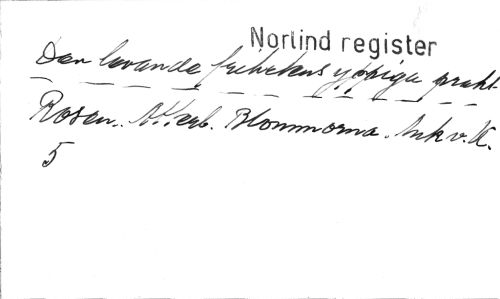 Norlind register
Den levande frihetens yppiga prakt
Rosen. Atterb. Blommorna. Ink v. K.
5